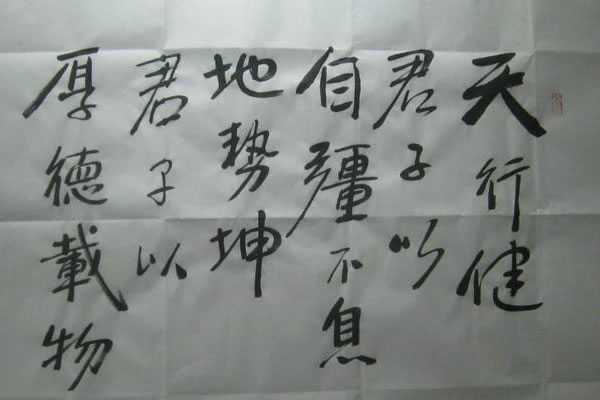 天行健
君子以
自彊不息
地势坤
君子以
厚德載物